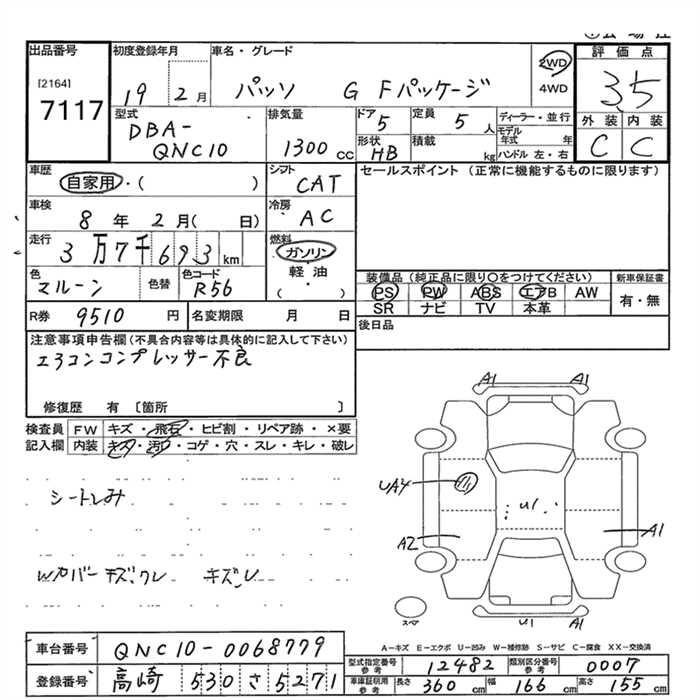 出品番号
[2164]
7117
初度登録年月
19 2月
車名・グレード
パッソ G Fパッケージ
2WD
4WD
評価点
3.5
外装 内装
C C
型式
DBA-
QNC10
排気量
1300 cc
ドア
5
形状
HB
定員
5 人
積載
kg
ディーラー・並行
モデル年式 年
ハンドル 左・右
車歴
自家用・( )
シフト
CAT
車検
8 年 2 月( 日)
冷房
AC
走行
3万7千693 km
燃料
ガソリン
軽油
( )
色
マルーン
色替
色コード
R56
R券 9510 円
名変期限 月 日
セールスポイント (正常に機能するものに限ります)
装備品(純正品に限り○をつけてください)
PS PW ABS エアB AW
SR ナビ TV 本革
新車保証書
有・無
後日品
注意事項申告欄(不具合内容等は具体的に記入して下さい)
エアコンコンプレッサー不良
修復歴 有 〔箇所 〕
検査員記入欄
FW キズ・飛石・ヒビ割・リペア跡・×要
内装 キズ・汚れ・コゲ・穴・スレ・キレ・破レ
シートしみ
Wカバーキズ、ワレ キズ、U
A1 A1
UA4
U1
A2
A1
U1 A1
スペア
A-キズ E-エクボ U-凹み W-補修跡 S-サビ C-腐食 XX-交換済
車台番号 QNC10-0068779
登録番号 高崎 530 さ 5271
型式指定番号 参考 12482
類別区分番号 参考 0007
車庫証明用 参考 長さ 360 cm 幅 166 cm 高さ 155 cm